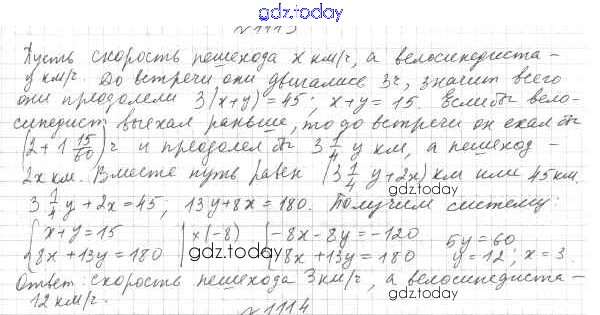 gdz.today
N 1113
Пусть скорость пешехода x км/ч, а велосипедиста –
y км/ч. До встречи они двигались 3ч, значит всего
они преодолели 3(x+y)=45; x+y=15. Если бы вело-
сипедист выехал раньше, то до встречи он ехал бы
(2+1 15/60) ч и преодолел бы 3 1/4 y км, а пешеход –
2x км. Вместе путь равен (3 1/4 y+2x) км или 45 км.
gdz.today
3 1/4 y+2x=45; 13y+8x=180. Получим систему:
{x+y=15 |x(-8) {-8x-8y=-120 5y=60
{8x+13y=180 | {8x+13y=180 y=12; x=3.
gdz.today
gdz.today
Ответ: скорость пешехода 3 км/ч, а велосипедиста –
12 км/ч.
N 1114